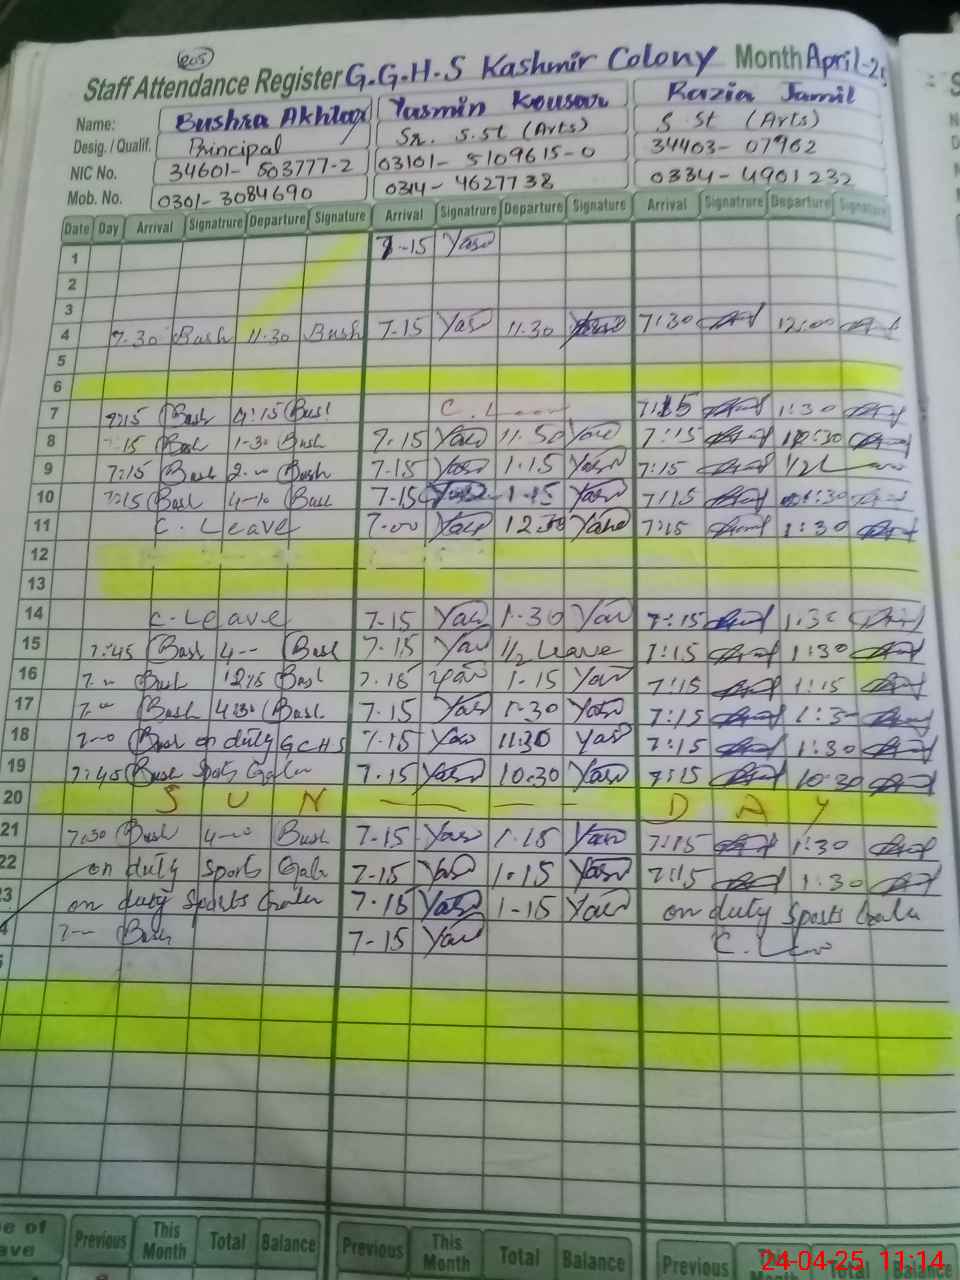 205
Staff Attendance Register G.G.H.S Kashmir Colony Month April-25
Name: Bushra Akhtar Yasmin Kousar Razia Jamil
Desig. / Qualif. Principal Sr. S.St (Arts) S St (Arts)
NIC No. 34601- 503777-2 03101- 5109615-0 34403- 07962
Mob. No. 0301- 3084690 0314- 4627738 0334- 4901232
Date Day Arrival Signatrure Departure Signature Arrival Signatrure Departure Signature Arrival Signatrure Departure Signature
1 7-15 Yas
2
3
4 7.30 Bush 11.30 Bush 7.15 Yas 11.30 7:30 12:00
5
6
7 Bush 4:15 Bush C. Leave 1:30
8 Bush 1-30 Bush 7.15 Yas 11.50 Yas 7:15
9 7:15 Bush 2.00 Bush 7-15 Yas 1.15 Yas 7:15 1/2 Leave
10 7:15 Bush 4-10 Bush 7-15 1-15 Yas 7:15
11 C. Leave 7-00 Yas Yas 7:15 1:30
12
13
14 C. Leave 7-15 Yas 1-30 Yas 7:15
15 7:45 Bush 4-- Bush 7-15 Yas 1/2 Leave 7:15 1:30
16 7.00 Bush Bush 7.15 Yas 1-15 Yas 7:15 1:15
17 7.00 Bush 4:30 Bush 7.15 Yas 1-30 Yas 7:15
18 7-00 Bush on duty GCHS 7-15 Yas 11:30 Yas 7:15 1:30
19 7:45 Bush Sports Gala 7-15 Yas 10.30 Yas 7:15 10-30
20 S U N - - - D A Y
21 7:30 Bush 4-00 Bush 7-15 Yas 1-15 Yas 7:15 1:30
22 on duty Sports Gala 7-15 Yas 1.15 Yas 7:15 1:30
3 on duty Sports Gala 7-15 Yas 1-15 Yas on duty Sports Gala
4 7-- Bush 7-15 Yas C. Leave
e of ave Previous This Month Total Balance Previous This Month Total Balance Previous This Month Total Balance
24-04-25 11:14